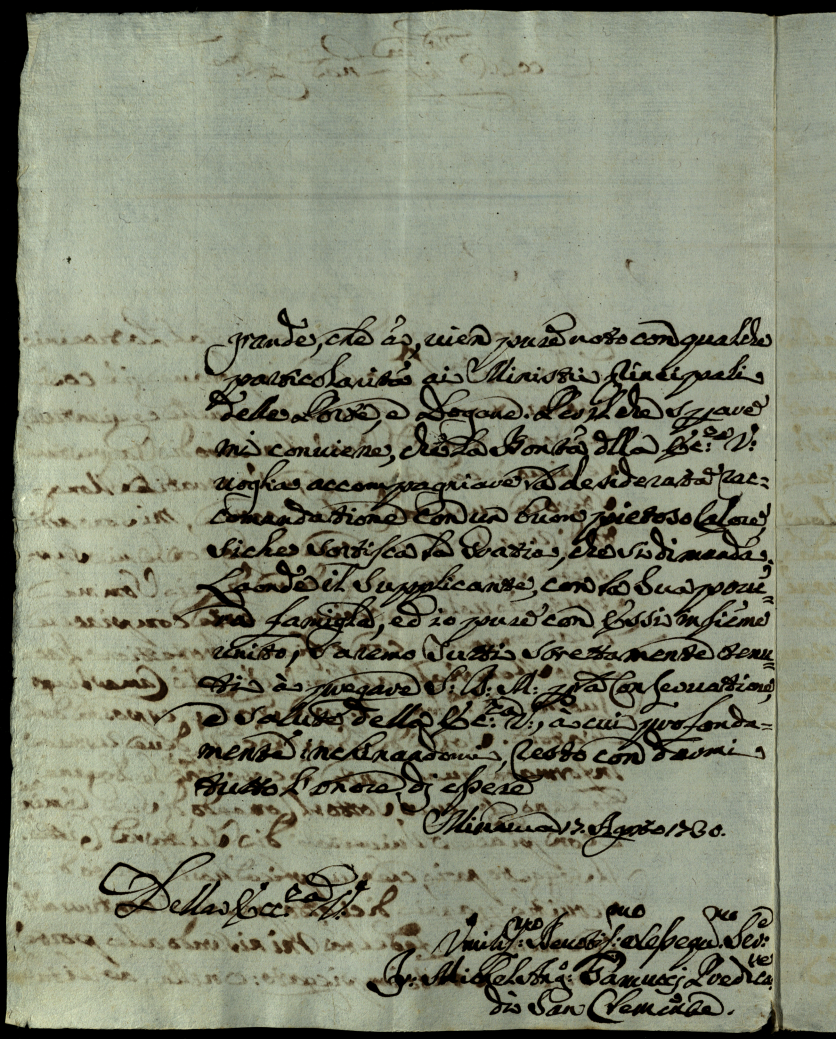 grande, che à, vien pure noto con qualche
particolarità ai Ministri Principali
delle Poste, e Dogane. Per il che
mi conviene, che la Bontà dlla Ecc.za V:
voglia accompagniare la desiderata rac-
comandatione con un buon pietoso Calore,
siche sortisca la Gratia, che si dimanda.
Laonde il Supplicante, con la sua pove-
ra famiglia, ed io pure con Essi insieme
unito, saremo tutti strettamente tenu-
ti à pregare S: D: M: p la Conservatione,
e Salute della Ecc.za V:, à cui profonda-
mente inchinandomi, resto con
tutto l'onore dj essere
17. Agosto 17
Della Ecc.za V.
Umilis.mo Devotis.mo Ossequ.mo Ser.e
Fr. Michel Ang.
di San Clemente.